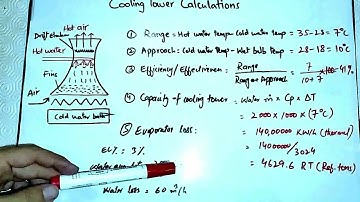 Cooling tower Calculations
Hot air
Drift elimi
Hot water
Fins
Air
Cold water
① Range = Hot water Temp - Cold water Temp = 35-28 = 7°C
② Approach = Cold water - Wet bulb Temp = 28-18 = 10°C
③ Efficiency/Effectiveness = Range / Range + Approach = 7 / 10+7 = 41%
④ Capacity of cooling tower = Water ṁ × Cp × ΔT
= 2000 × 1000 × (7°C)
⑤ Evaporator loss:
= 14000000 Kcal/h (thermal)
= 14000000 / 3024
= 4629.6 RT (Ref. tons)
EL% = 3%
Water
Water loss = 60 m³/h